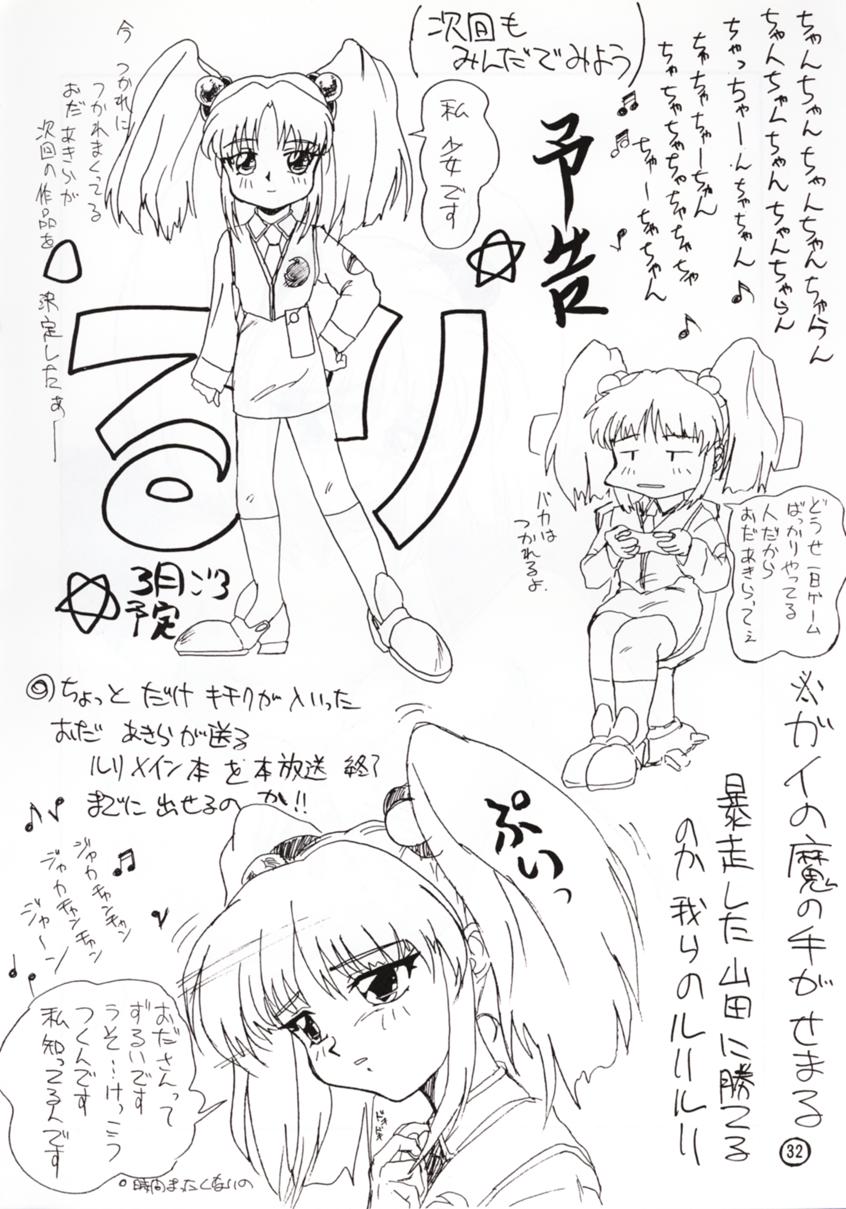 ちゃんちゃんちゃんちゃんちゃらん
ちゃんちゃんちゃんちゃんちゃらん
ちゃっちゃーんちゃちゃん♪
ちゃちゃちゃーちゃん
ちゃちゃちゃちゃちゃちゃちゃ
ちゃーちゃちゃん
(次回も
みんだでみよう)
予告
私
少女です
今つかれに
つかれまくってる
おだあきらが
次回の作品を
決定したぁー
るり
3月ごろ
予定
どうせ一日ゲーム
ばっかりやってる
人だから
おだあきらってぇ
バカは
つかれるよ.
◎ちょっとだけキチクが入った
おだあきらが送る
ルリメイン本を本放送終了
までに出せるのか!!
※ガイの魔の手がせまる
暴走した山田に勝てる
のか我らのルリルリ
ぷいっ
ジャカキャンキャン
ジャカキャンキャン
ジャーン
おださんって
ずるいです
うそ…けっこう
つくんです
私知ってるんです
ドキドキ
。時間まったくないの
32